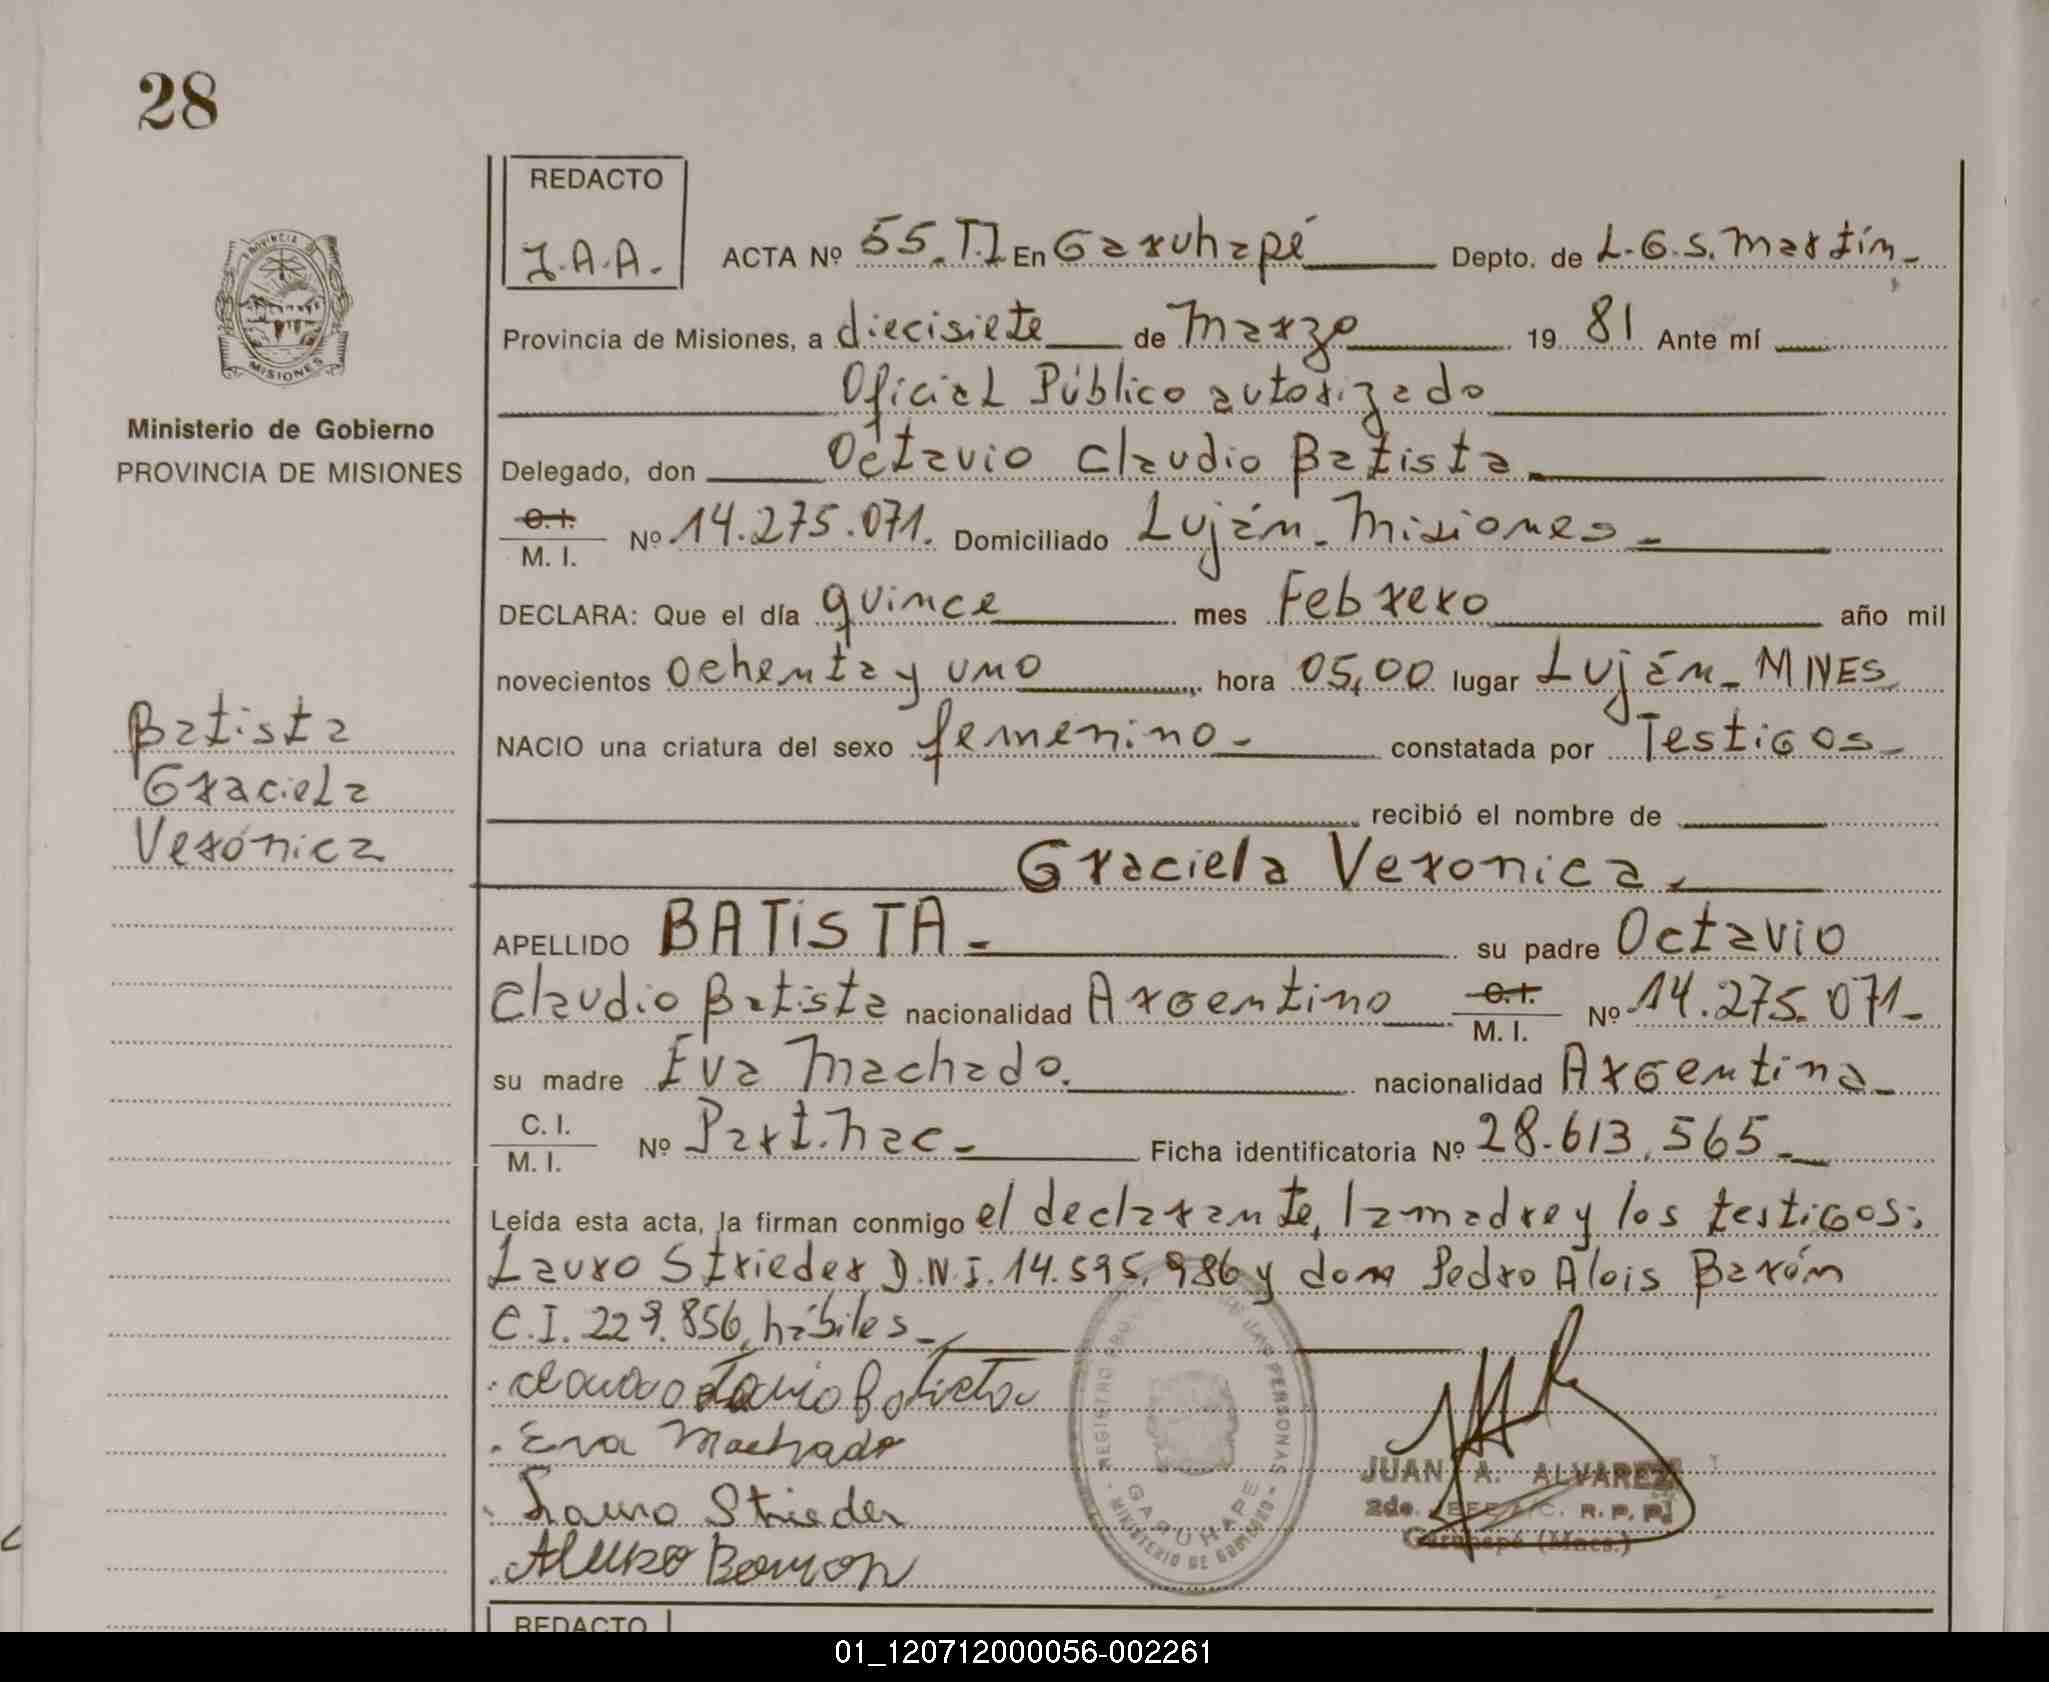 28
REDACTO
J.A.A.
ACTA Nº 55. T.I En Garuhapé Depto. de L.G.S. Martín
Provincia de Misiones, a diecisiete de Marzo 19 81 Ante mí
Oficial Público autorizado
Delegado, don Octavio Claudio Batista
C.I. / M. I. Nº 14.275.071. Domiciliado Luján - Misiones
DECLARA: Que el día quince mes Febrero año mil
novecientos ochenta y uno, hora 05,00 lugar Luján - MNES
NACIO una criatura del sexo femenino constatada por Testigos
recibió el nombre de
Graciela Veronica
APELLIDO BATISTA su padre Octavio
Claudio Batista nacionalidad Argentino C.I. / M. I. Nº 14.275.071
su madre Eva Machado. nacionalidad Argentina
C. I. / M. I. Nº Part. nac Ficha identificatoria Nº 28.613.565
Leída esta acta, la firman conmigo el declarante, la madre y los testigos:
Lauro Strieder D.N.I. 14.595.986 y don Pedro Alois Barón
C.I. 229.856, hábiles
Batista
Eva Machado
Lauro Strieder
Baron
PROVINCIA DE
MISIONES
Ministerio de Gobierno
PROVINCIA DE MISIONES
Batista
Graciela
Verónica
REGISTRO PERSONAS
GARUHAPE
MINISTERIO DE GOBIERNO
JUAN A. ALVAREZ
2do. JEFE A/C. R. P. P.
Garuhapé (Mnes.)
REDACTO
01_120712000056-002261